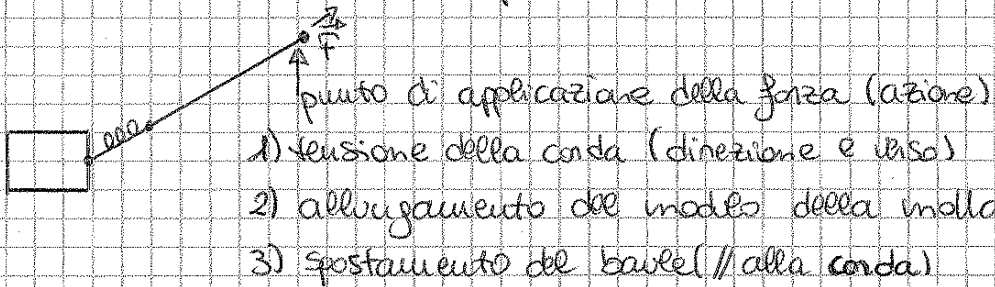 F
punto di applicazione della forza (azione)
1) tensione della corda (direzione e verso)
2) allungamento del modulo della molla
3) spostamento del baule (// alla corda)